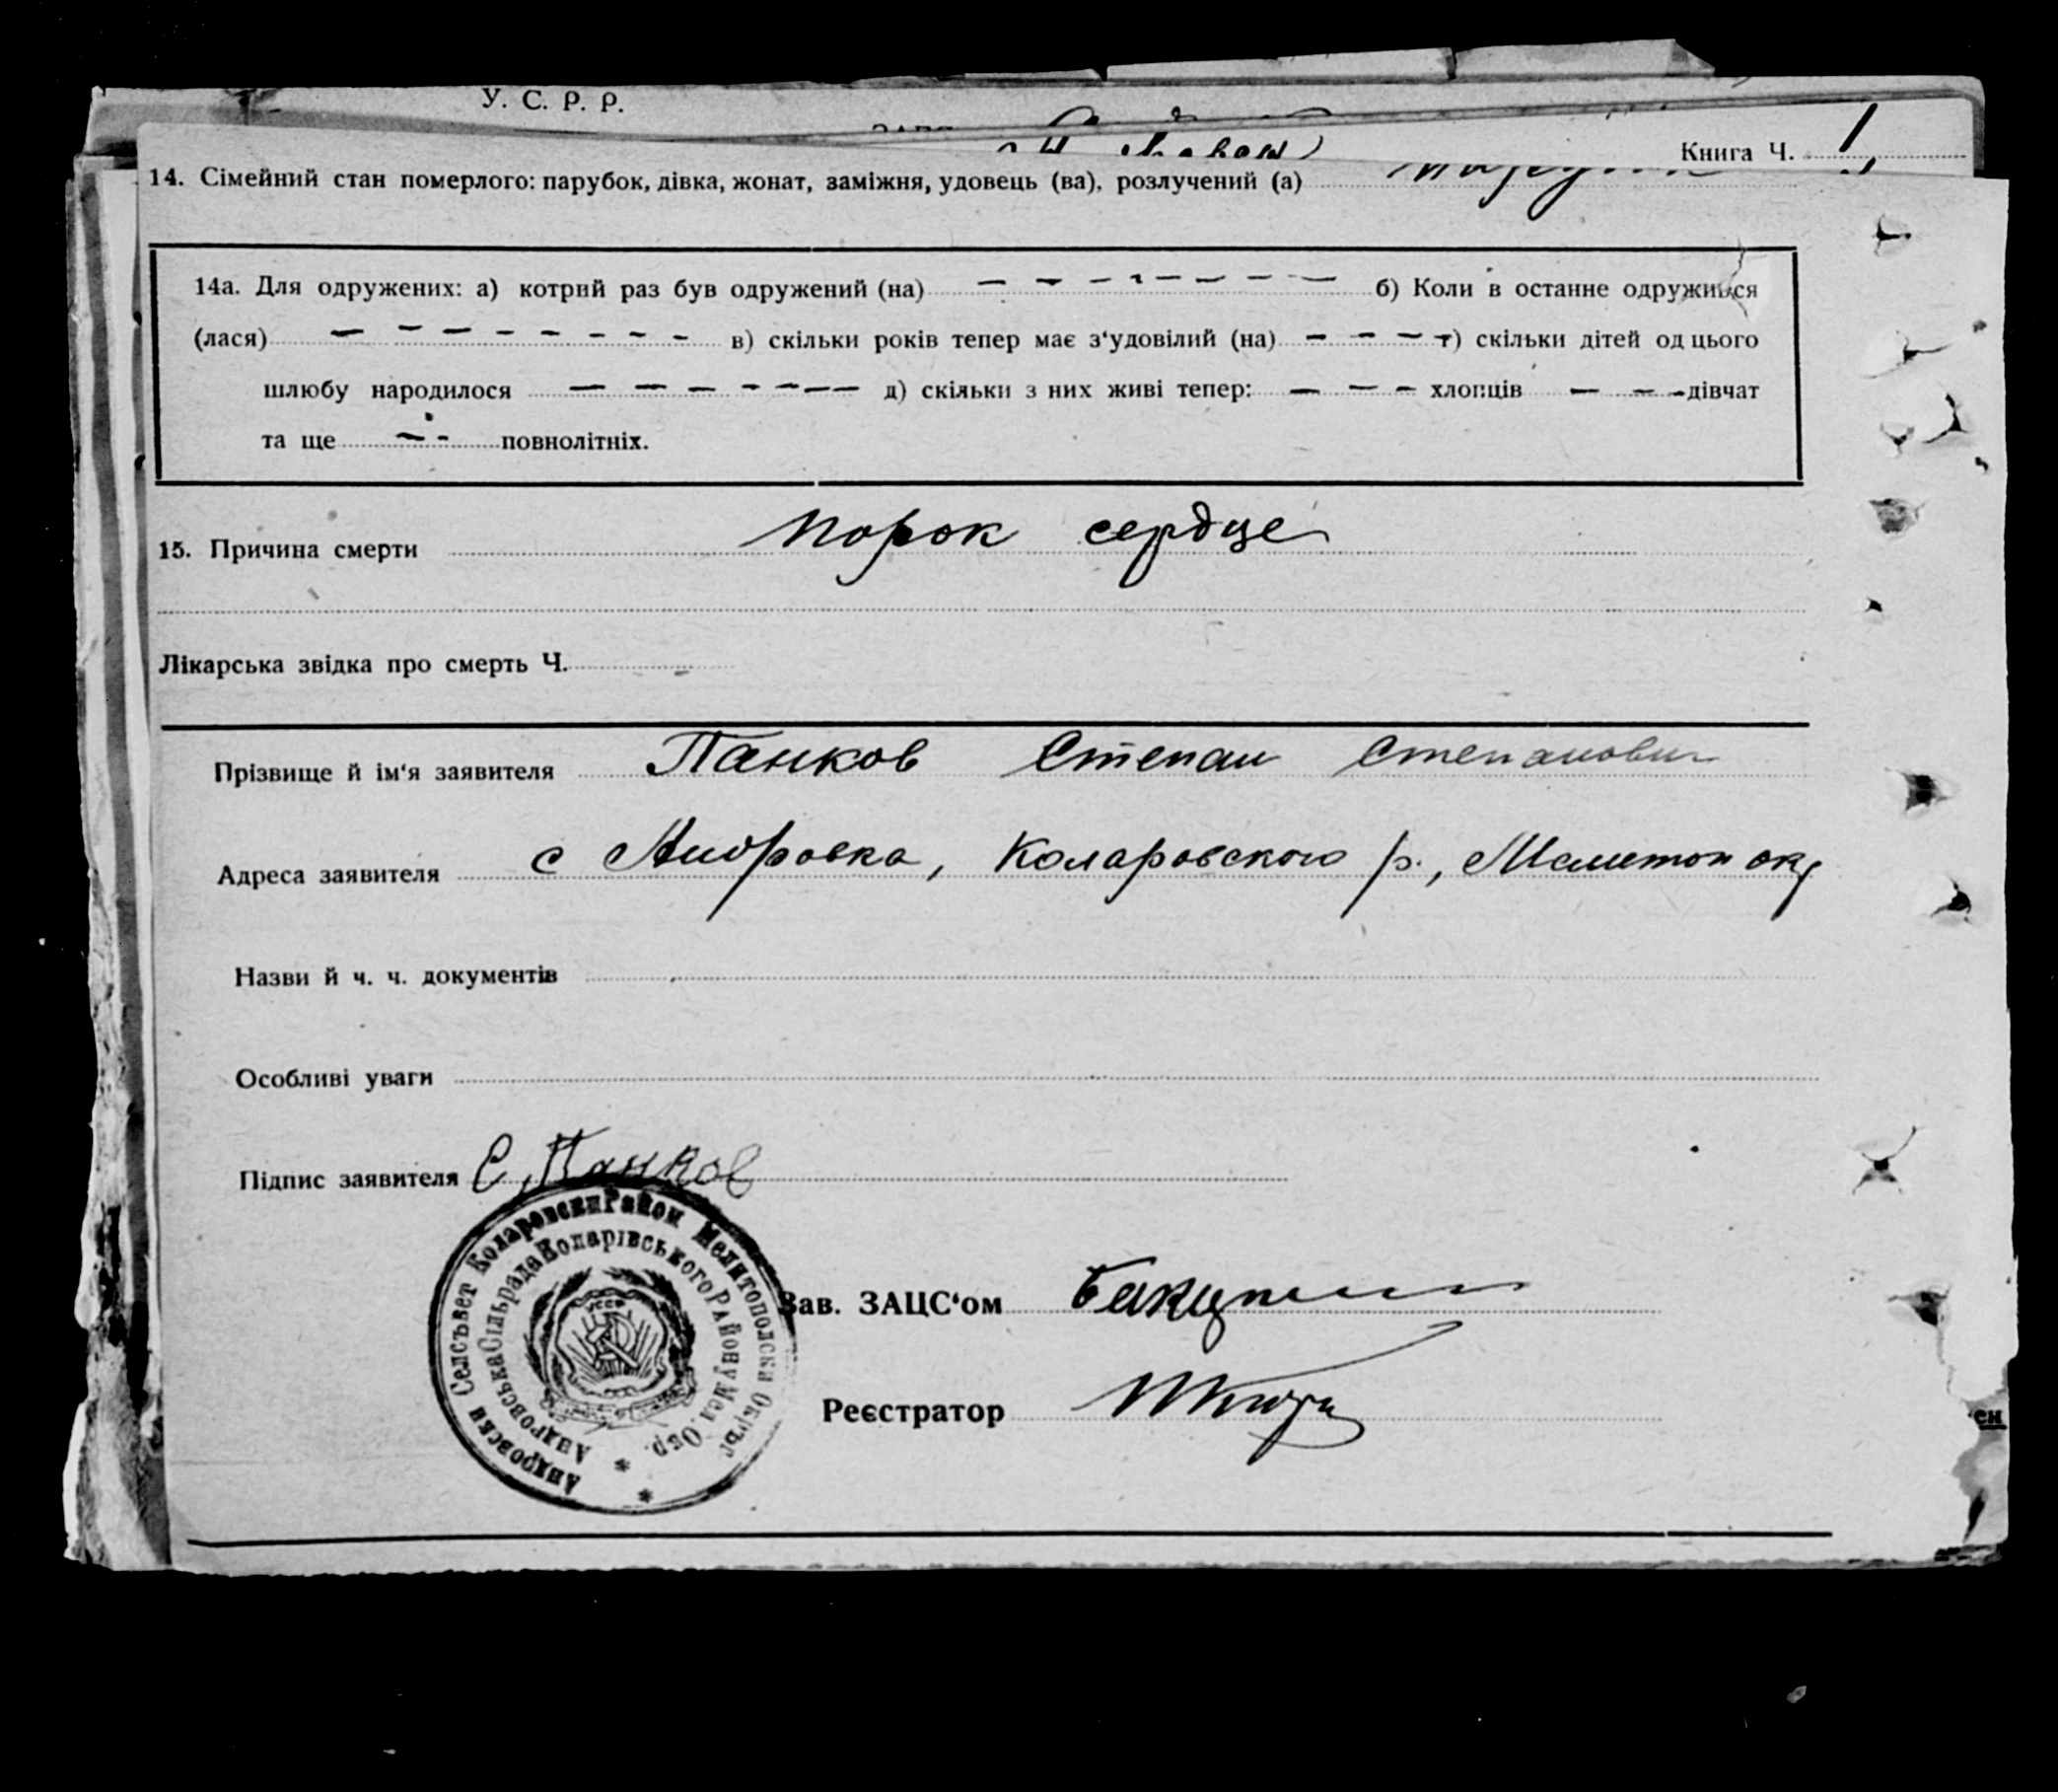 У. С. Р. Р.
Книга Ч. 1
14. Сімейний стан померлого: парубок, дівка, жонат, заміжня, удовець (ва), розлучений (а)
14а. Для одружених: а) котрий раз був одружений (на) — — — — — — — б) Коли в останнє одружився
(лася) — — — — — — — — в) скільки років тепер має з'удовілий (на) — — — г) скільки дітей од цього
шлюбу народилося — — — — — — — д) скільки з них живі тепер: — — — хлопців — — — дівчат
та ще — - повнолітніх.
15. Причина смерти порок сердце
Лікарська звідка про смерть Ч.
Прізвище й ім'я заявителя Панков Степан Степанович
Адреса заявителя с Андровка, Коларовского р., Мелитоп окр
Назви й ч. ч. документів
Особливі уваги
Підпис заявителя С. Панков
Андровски Селсъвет Коларовски Район Мелитополски Окръг
Андровська Сільрада Коларівського Району Мел. Окр.
УССР
Зав. ЗАЦС'ом
Реєстратор